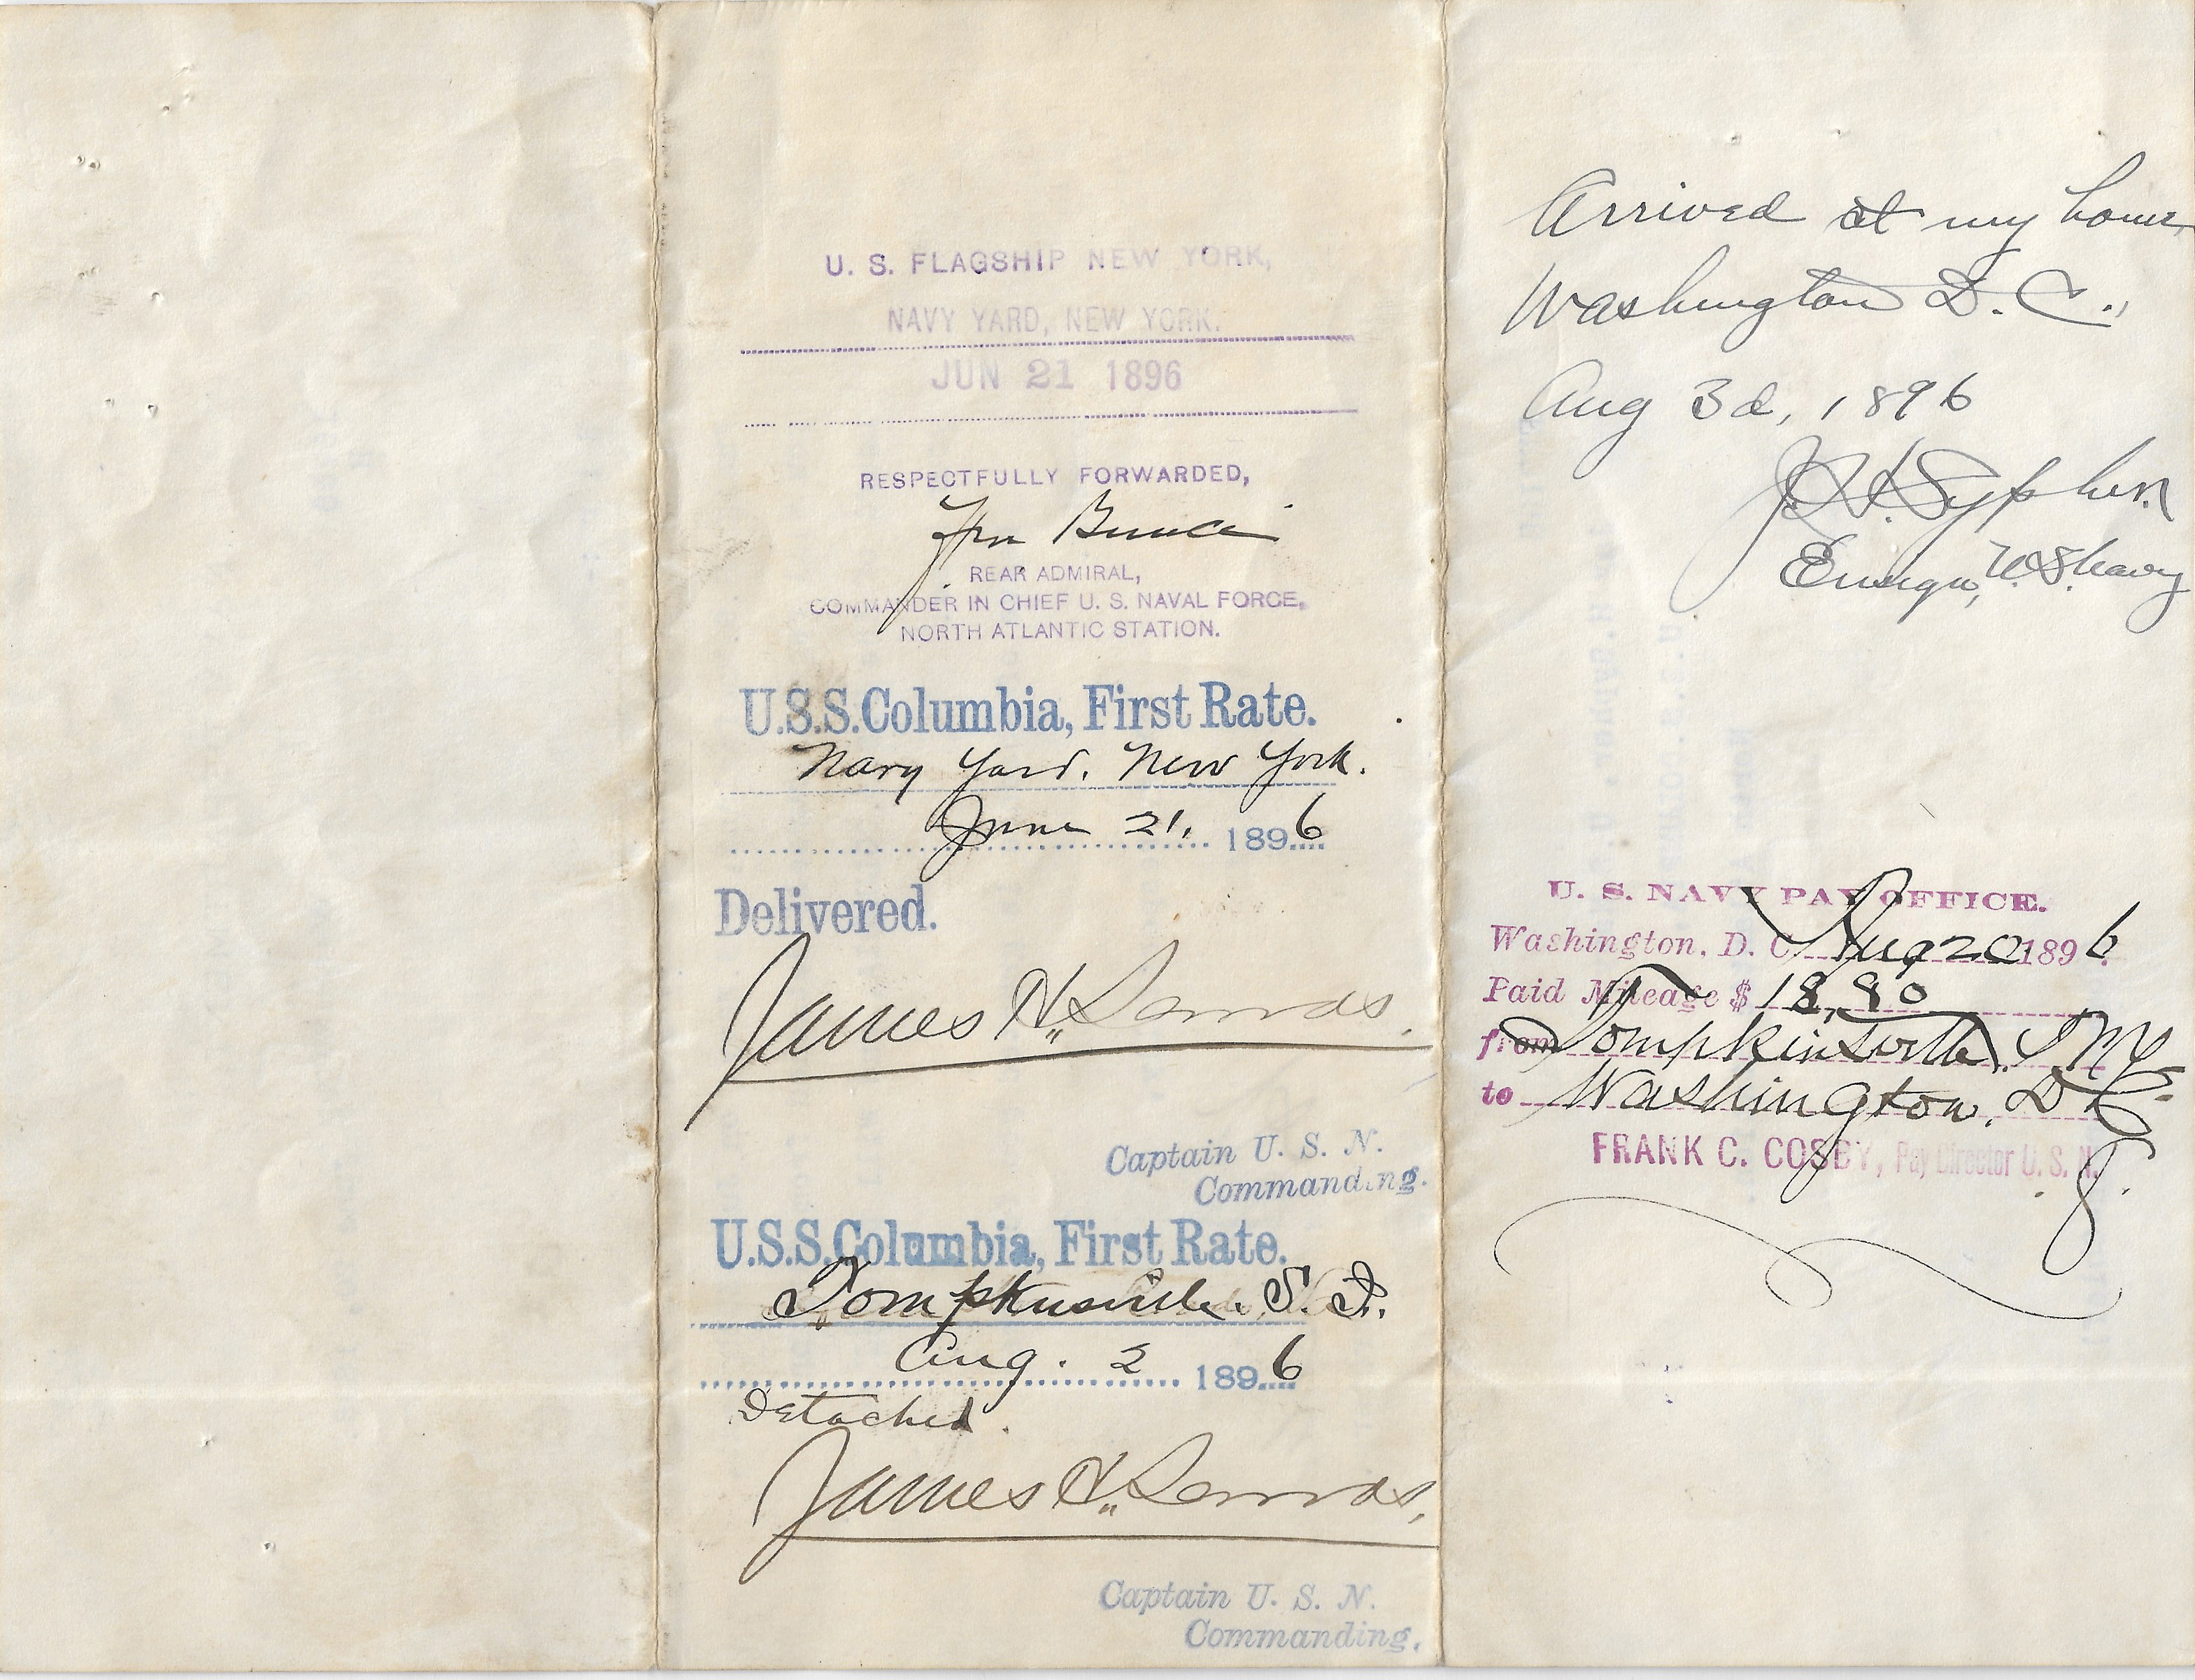 U. S. FLAGSHIP NEW YORK,
NAVY YARD, NEW YORK.
JUN 21 1896
RESPECTFULLY FORWARDED,
Bunce
REAR ADMIRAL,
COMMANDER IN CHIEF U. S. NAVAL FORCE,
NORTH ATLANTIC STATION.
U.S.S. Columbia, First Rate.
Navy Yard, New York.
June 21, 1896
Delivered.
James H. Sands.
Captain U. S. N.
Commanding.
U.S.S. Columbia, First Rate.
Tompkinsville. S. I.
Aug. 2 1896
Detached.
James H. Sands,
Captain U. S. N.
Commanding.
Arrived at my home,
Washington D. C.,
Aug 3d, 1896
J. H. Sypher
Ensign, U.S. Navy
U. S. NAVY PAY OFFICE.
Washington, D. C. Aug 20 1896
Paid Mileage $ 18,80
from Tompkinsville, NY
to Washington, D C
FRANK C. COSBY, Pay Director U. S. N.